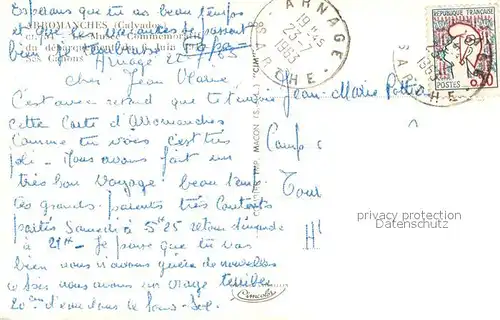 Esperons que tu as beau temps
et que les vacances se passent
bien
ARROMANCHES (Calvados)
Musée Commémoratif
du débarquement Juin
Canons
Arnage
63
Cher Jean
C'est avec retard que je t'envoie
cette Carte d'Arromanches
Comme tu vois c'est très
joli - Nous avons fait un
très bon voyage beau temps
les grands-parents très contents
partis Samedi à 5h 25 retour dimanche
à 21h - Je pense que tu vas
bien nous n'avons guère de nouvelles
ce soir nous avons un orage terrible
20 cm d'eau dans le sous-sol
COMBIER IMP. MACON (S.-&-L.) "CIM"
Cimcolor
ARNAGE
19 H
23-7
1963
SARTHE
REPUBLIQUE FRANÇAISE
POSTES
0,20
1963
SARTHE
Jean-Marie
Camp
Tour
privacy protection
Datenschutz